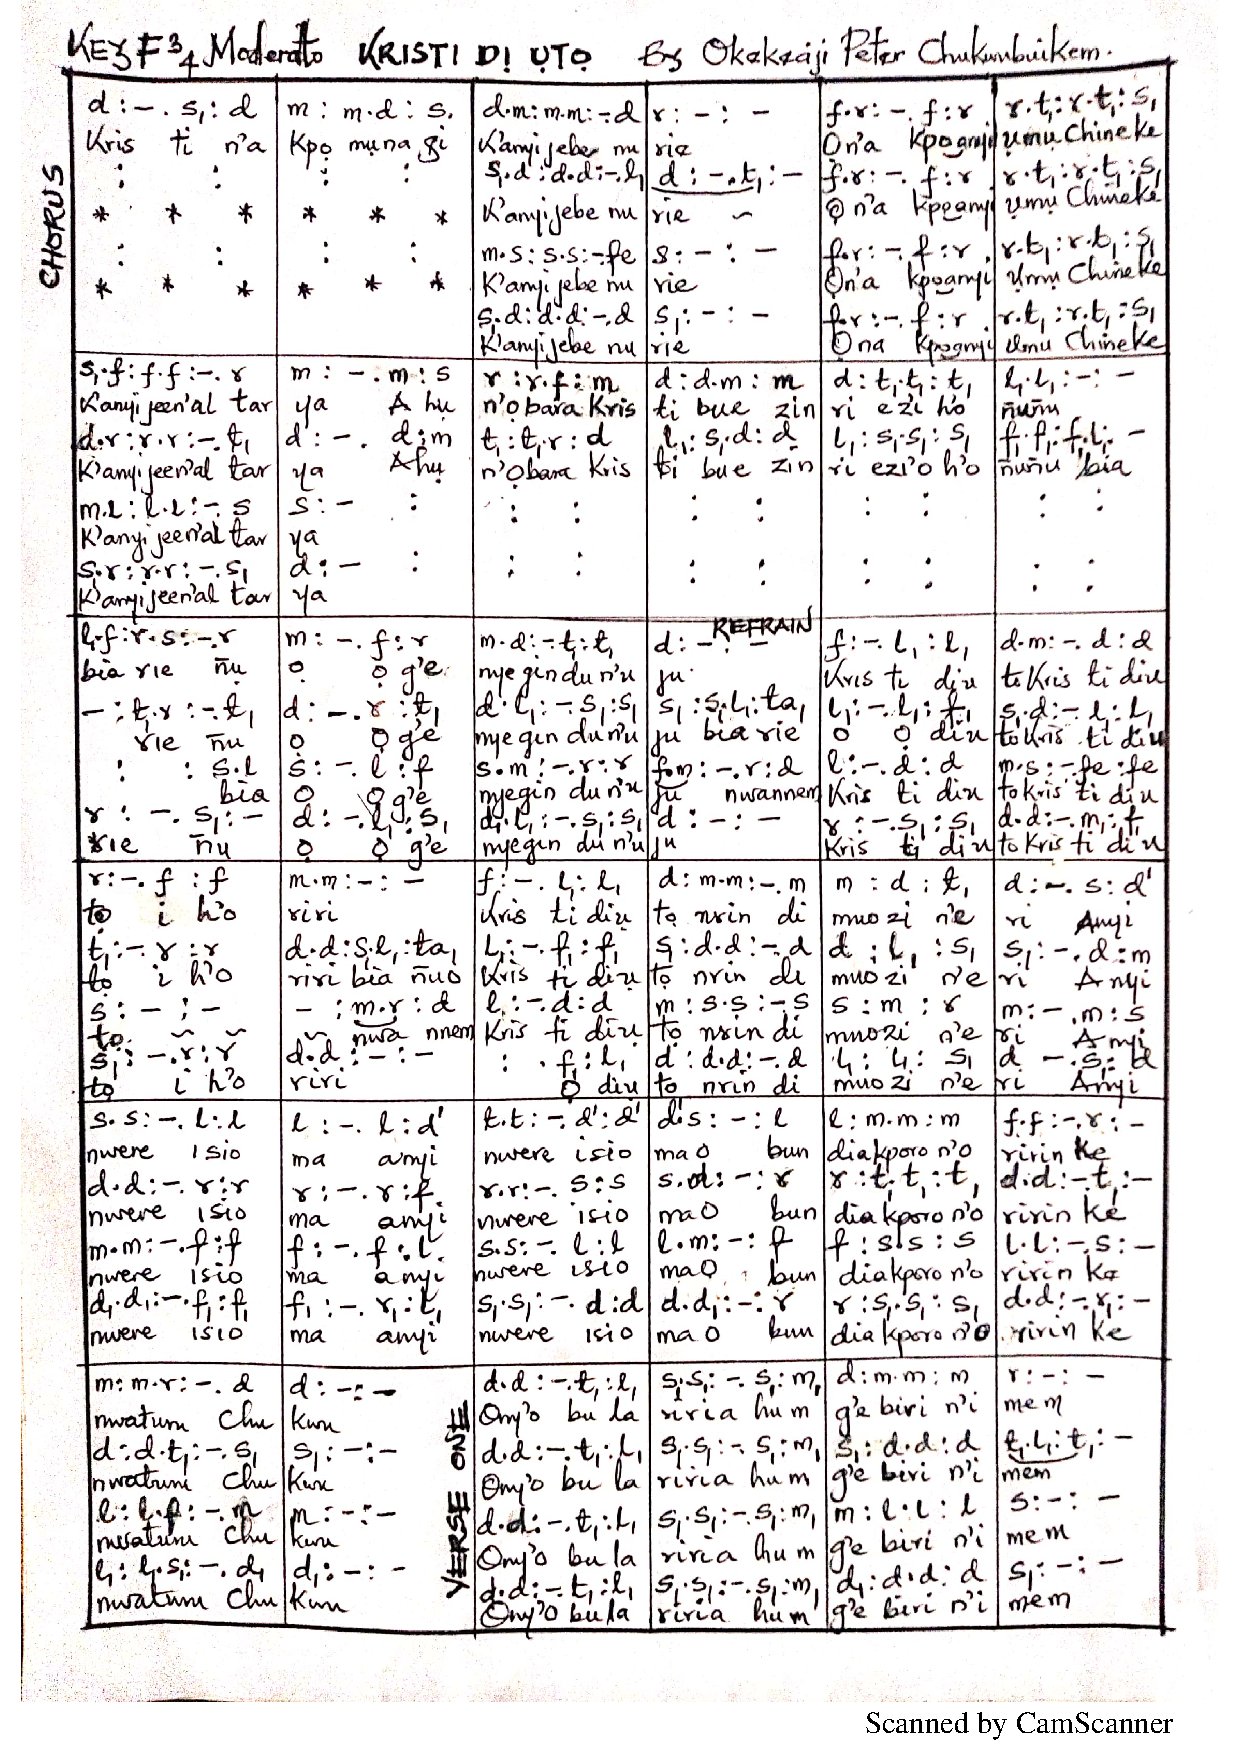 KEY F 3/4 Moderato KRISTI DỊ ỤTỌ By Okekeaji Peter Chukwubuikem.
CHORUS
d : –. s₁ : d | m : m.d : s. | d.m : m.m : –.d | r : – : – | f.r : –. f : r | r.t₁ : r.t₁ : s₁
Kris ti n'a | Kpọ mụna gi | K'anyi jebe nu | rie | On'a kpọanyi | ụmụ Chineke
: : | : : | s₁.d : d.d : –.l₁ | d : –.t₁ : – | f.r : –. f : r | r.t₁ : r.t₁ : s₁
* * * | * * * | K'anyi jebe nu | rie ~ | Ọ n'a kpọanyi | ụmụ Chineke
: : | : : | m.s : s.s : –.fe | s : – : – | f.r : –. f : r | r.t₁ : r.t₁ : s₁
* * * | * * * | K'anyi jebe nu | rie | Ọn'a kpọanyi | ụmụ Chineke
s₁.d : d.d : –.d | s₁ : – : – | f.r : –. f : r | r.t₁ : r.t₁ : s₁
K'anyi jebe nu | rie | Ọna kpọanyi | Umu Chineke
s₁.f : f.f : –. r | m : –. m : s | r : r.f : m | d : d.m : m | d : t₁.t₁ : t₁ | l₁.l₁ : – : –
Kanyi jeen'al tar | ya A hụ | n'ọbara Kris | ti bue zin | ri ezi h'o | ñuñu
d.r : r.r : –. t₁ | d : –. d : m | t₁ : t₁.r : d | l₁ : s₁.d : d | l₁ : s₁.s₁ : s₁ | f₁.f₁ : f₁.l₁ : –
K'anyi jeen'al tar | ya Ahụ | n'ọbara Kris | ti bue zin | ri ezi'o h'o | ñuñu bia
m.l : l.l : –. s | s : – : | : : | : : | : : | : :
K'anyi jeen'al tar | ya
s₁.r : r.r : –. s₁ | d : – : | : : | : : | : : | : :
K'anyi jeen'al tar | ya
REFRAIN
l₁.f : r.s : –. r | m : –. f : r | m.d : – t₁ : t₁ | d : – : – | f : –. l₁ : l₁ | d.m : –. d : d
bia rie ñu | ọ ọ g'e | nye gin du n'u | ju | Kris ti diu | to Kris ti diu
– : t₁.r : –. t₁ | d : –. r : t₁ | d.l₁ : –. s₁ : s₁ | s₁ : s₁.l₁ : ta₁ | l₁ : –. l₁ : f₁ | s₁.d : –. l₁ : l₁
rie ñu | ọ ọ g'e | nye gin du n'u | ju bia rie | o ọ diu | to Kris ti diu
: : s.l | s : –. l : f | s.m : –. r : r | f.m : –. r : d | l : –. d : d | m.s : –. fe : fe
bia | O Ọ g'e | nyegin du n'u | ju nwannem | Kris ti diu | to kris ti diu
r : –. s₁ : – | d : –. l₁ : s₁ | d.l₁ : –. s₁ : s₁ | d : – : – | r : –. s₁ : s₁ | d.d : –. m₁ : f₁
rie ñu | Ọ Ọ g'e | nyegin du n'u | ju | Kris ti diu | to Kris ti diu
r : –. f : f | m.m : – : – | f : –. l₁ : l₁ | d : m.m : –. m | m : d : t₁ | d : –. s : d'
tọ i h'o | riri | Kris ti diụ | tọ nrin di | muo zi n'e | ri Anyi
t₁ : – r : r | d.d : s₁.l₁ : ta₁ | l₁ : –. f₁ : f₁ | s₁ : d.d : –. d | d : l₁ : s₁ | s₁ : –. d : m
to i h'o | riri bia ñuo | Kris ti diu | tọ nrin di | muo zi n'e | ri Anyi
s : – : – | – : m.r : d | l : –. d : d | m : s.s : –.s | s : m : r | m : –. m : s
to ~ ~ | ~ nwa nnem | Kris ti diu | to nrin di | muozi n'e | ri Anyi
s₁ : –. r : r | d.d : – : – | : . f₁ : l₁ | d : d.d : –. d | l₁ : l₁ : s₁ | d –. s₁ : d
to i h'o | riri | Ọ diu | to nrin di | muo zi n'e | ri Anyi
s.s : –. l : l | l : –. l : d' | t.t : –. d' : d' | d'.s : – : l | l : m.m : m | f.f : –. r : –
nwere isio | ma anyi | nwere isio | ma O bun | diakporo n'o | ririn ke
d.d : –. r : r | r : –. r : f | r.r : –. s : s | s.d : – : r | r : t₁.t₁ : t₁ | d.d : –. t₁ : –
nwere isio | ma anyi | nwere isio | ma O bun | diakporo n'o | ririn ke
m.m : –. f : f | f : –. f : l | s.s : –. l : l | l.m : – : f | f : s.s : s | l.l : –. s : –
nwere isio | ma anyi | nwere isio | ma O bun | diakporo n'o | ririn ke
d₁.d₁ : –. f₁ : f₁ | f₁ : –. r₁ : t₁ | s₁.s₁ : –. d : d | d.d₁ : – : r | r : s₁.s₁ : s₁ | d.d : –. r₁ : –
nwere isio | ma anyi | nwere isio | ma O bun | diakporo n'o | ririn ke
VERSE ONE
m : m.r : –. d | d : – : – | d.d : –. t₁ : l₁ | s₁.s₁ : –. s₁ : m₁ | d : m.m : m | r : – : –
nwaturu Chu | kwu | Ony'o bu la | riria hu m | g'e biri n'i | mem
d : d.t₁ : –. s₁ | s₁ : – : – | d.d : –. t₁ : l₁ | s₁.s₁ : –. s₁ : m₁ | s₁ : d.d : d | t₁.l₁ : t₁ : –
nwaturu Chu | kwu | Ony'o bu la | riria hu m | g'e biri n'i | mem
l : l.f : –. m | m : – : – | d.d : –. t₁ : l₁ | s₁.s₁ : –. s₁ : m₁ | m : l.l : l | s : – : –
nwaturu Chu | kwu | Ony'o bu la | riria hu m | g'e biri n'i | mem
l₁ : l₁.s₁ : –. d₁ | d₁ : – : – | d.d : –. t₁ : l₁ | s₁.s₁ : –. s₁ : m₁ | d₁ : d.d : d | s₁ : – : –
nwaturu Chu | kwu | Ony'o bu la | riria hu m | g'e biri n'i | mem
Scanned by CamScanner